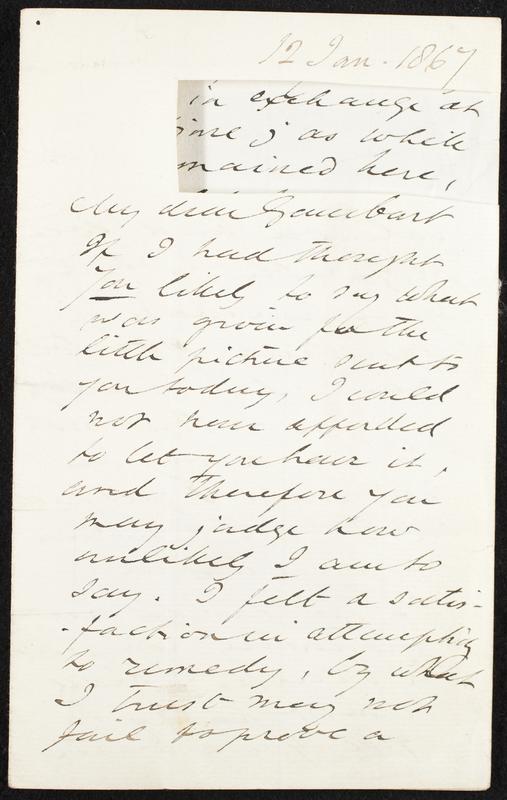 12 Jan. 1867
in exchange at
ime; as while
mained here,
My dear Gambart
If I had thought
you likely to say what
was given for the
little picture sent to
you today, I could
not have afforded
to let you have it,
and therefore you
may judge how
unlikely I am to
say. I felt a satis-
-faction in attempting
to remedy, by what
I trust may not
fail to prove a